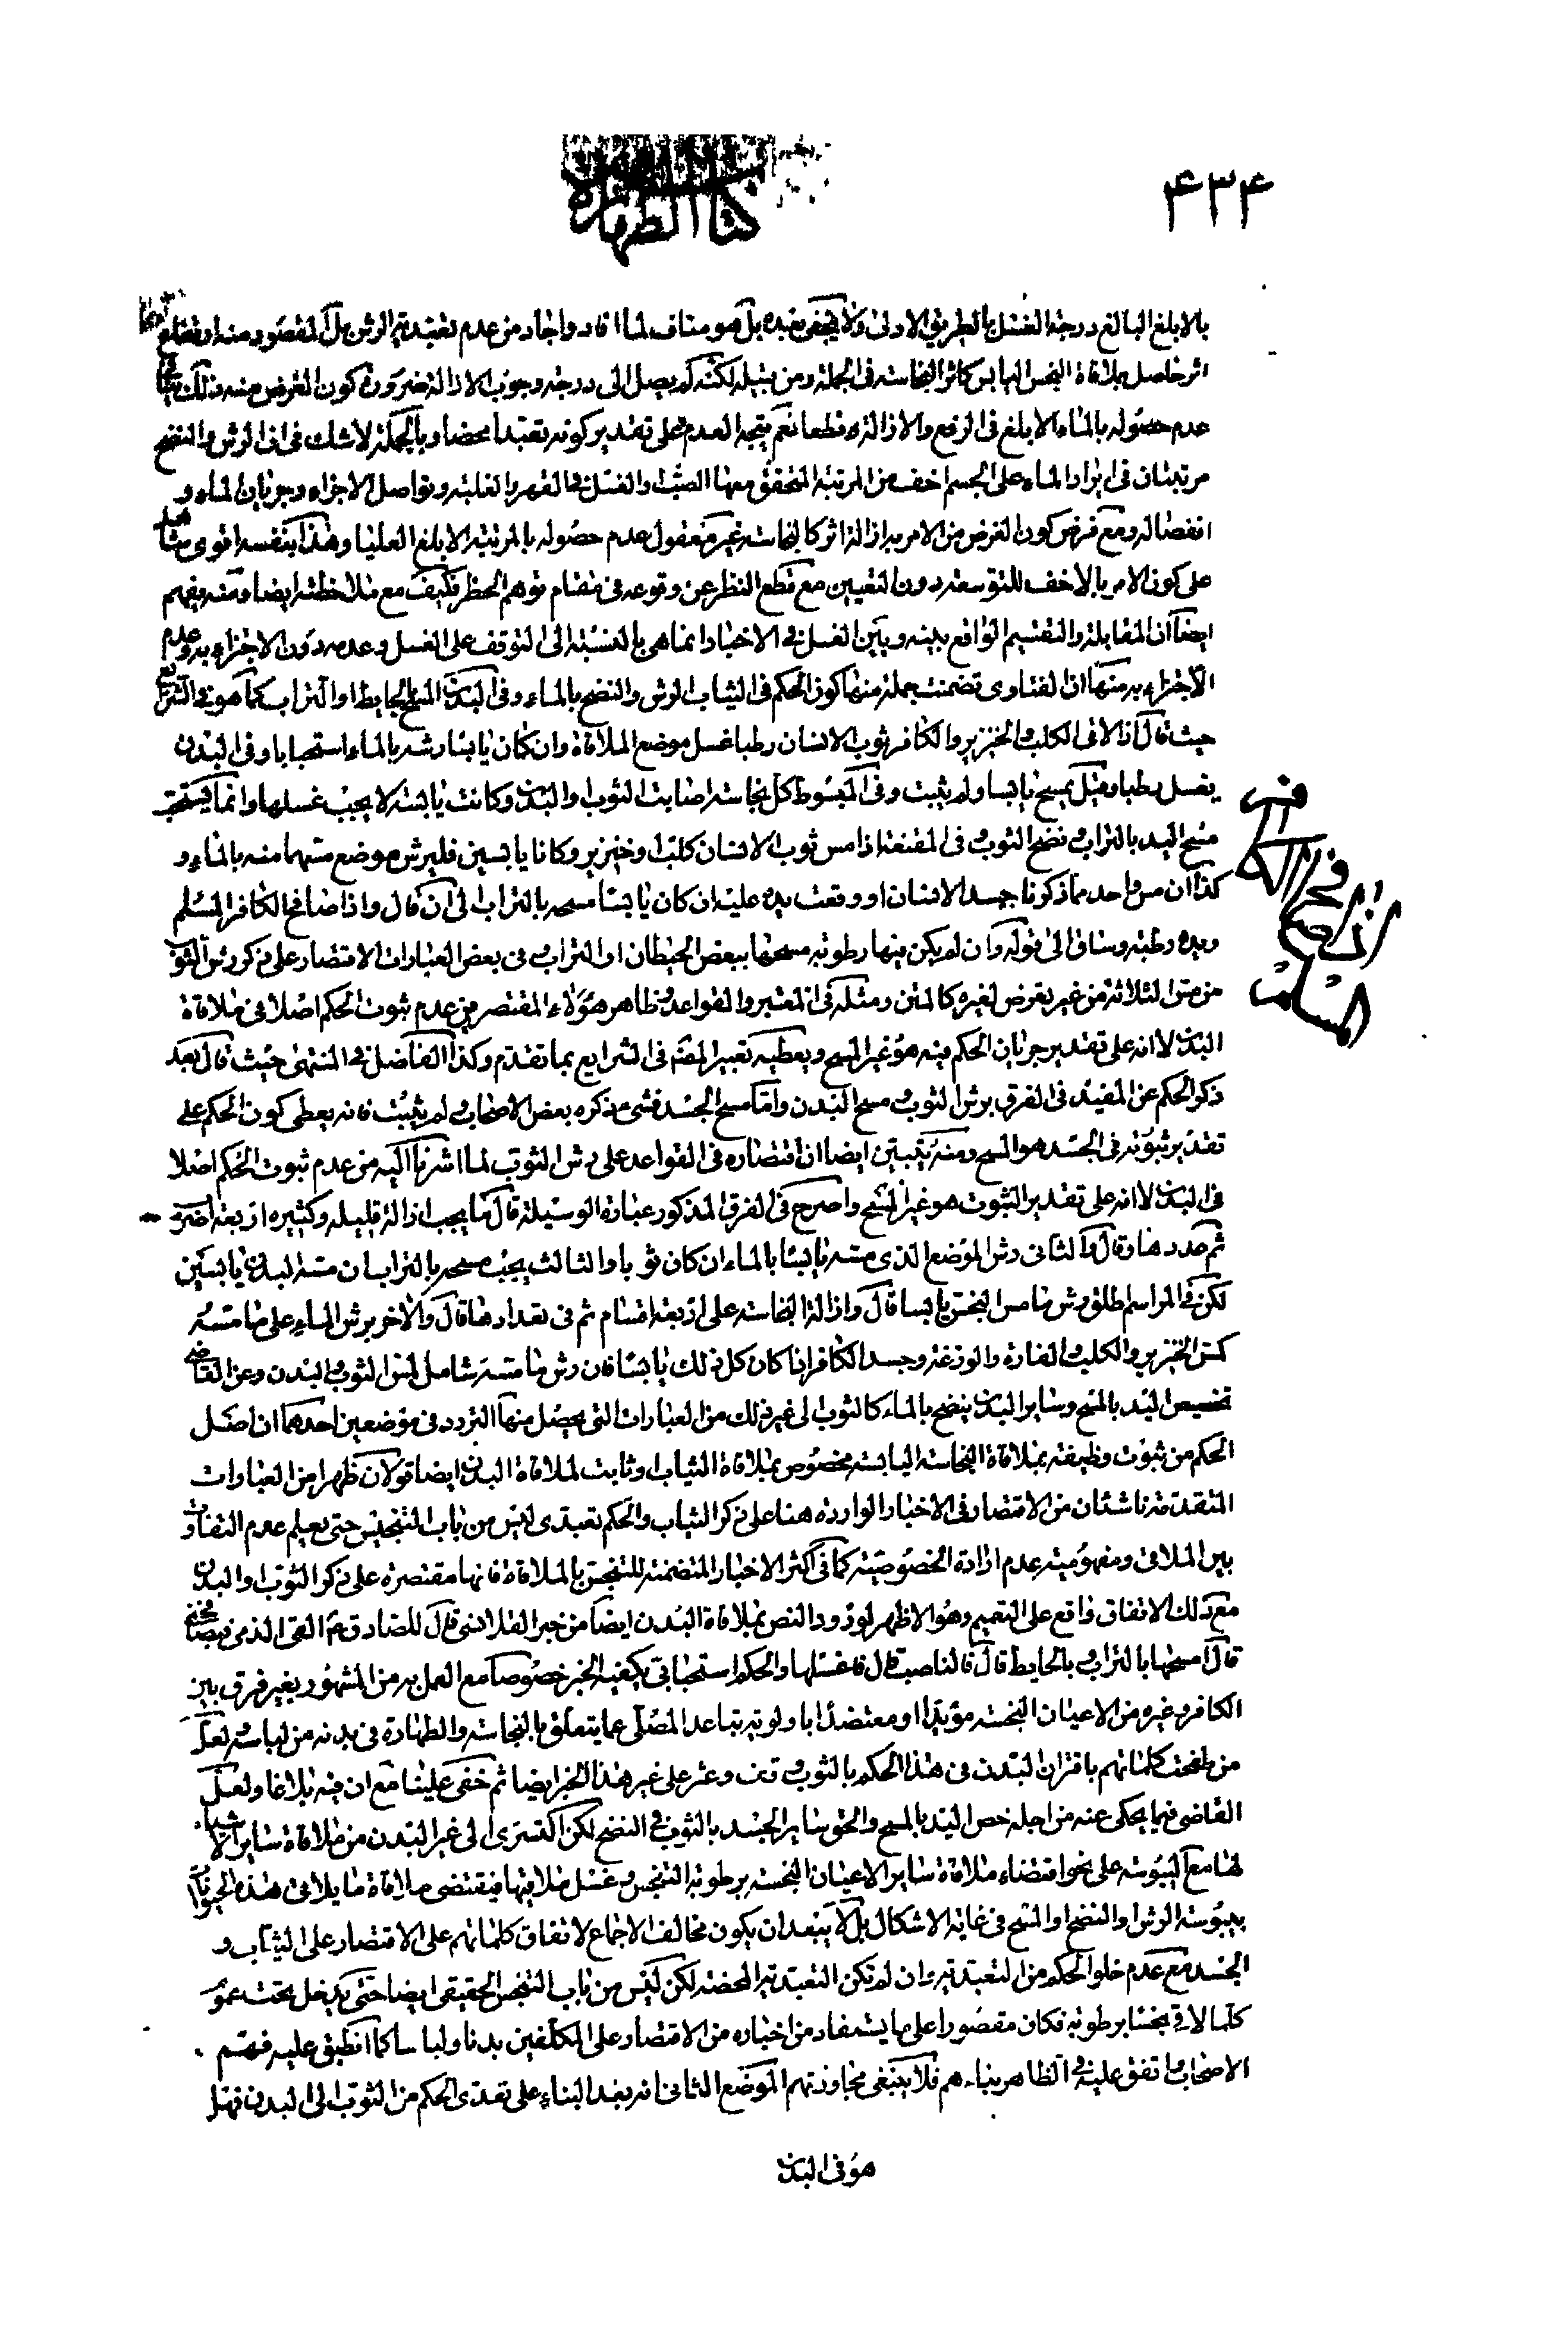 ۴۳۴
كتاب الطهارة
بالابلغ البالغ درجة الغسل بالطريق الاولى ولا يخفى بعده بل هو مناف لما افاد واجاد من عدم تعبدية الرش بل المقصود منه
اثر حاصل بملاقاة النجس اليابس كاثر النجاسة في الجملة ومن قبيله لكنه لم يصل الى درجة وجوب الازالة ضرورة كون الغرض منه ذلك
عدم حصوله بالماء الابلغ في الرفع والازالة قطعا نعم يتجه العدم على تقدير كونه تعبدا محضا وبالجملة لا شك في ان الرش والنضح
مرتبتان في ايراد الماء على الجسم اخف من المرتبة المتحقق معها الصب والغسل في القهر والغلبة وتواصل الاجزاء وجريان الماء و
انفصاله ومع فرض كون الغرض من الامر به ازالة اثر كالنجاسة غير معقول عدم حصوله بالمرتبة الابلغ العليا وهذا بنفسه اقوى شاهد
على كون الامر بالاخف للتوسعة دون التعيين مع قطع النظر عن وقوعه في مقام توهم الحظر فكيف مع ملاحظته ايضا ومنه يفهم
ايضا ان المقابلة والتقسيم الواقع بينه وبين الغسل في الاخبار انما هي بالنسبة الى التوقف على الغسل وعدمه دون الاجتزاء به وعدم
الاجتزاء به منها ان الفتاوى تضمنت جملة منها كون الحكم في الثياب الرش والنضح بالماء وفي البدن المسح بالحايط او التراب كما هو في الشرايع
حيث قال اذا لاقى الكلب والخنزير والكافر ثوب الانسان رطبا غسل موضع الملاقاة وان كان يابسا رشه بالماء استحبابا وفي البدن
يغسل رطبا وقيل يمسح يابسا ولم يثبت وفي المبسوط كل نجاسة اصابت الثوب او البدن وكانت يابسة لا يجب غسلها وانما يستحب
مسح اليد بالتراب ونضح الثوب وفي المقنعة اذا مس ثوب الانسان كلب او خنزير وكانا يابسين فليرش موضع مسهما منه بالماء و
كذا ان مس واحد مما ذكرنا جسد الانسان او وقعت يده عليه ان كان يابسا مسحه بالتراب الى ان قال واذا صافح الكافر المسلم
ويده رطبة وساق الى قوله وان لم يكن فيها رطوبة مسحها ببعض الحيطان او التراب وفي بعض العبارات الاقتصار على ذكر رش الثوب
من مس الثلاثة من غير تعرض لغيره كالمتن ومثله في المعتبر والقواعد وظاهر هؤلاء المقتصرين عدم ثبوت الحكم اصلا في ملاقاة
البدن لا انه على تقدير جريان الحكم فيه هو غير المسح ويعطيه تعبير المصنف في الشرايع بما تقدم وكذا الفاضل في المنتهى حيث قال بعد
ذكر الحكم عن المفيد في الفرق برش الثوب ومسح البدن واما مسح الجسد فشيء ذكره بعض الاصحاب ولم يثبت فانه يعطى كون الحكم على
تقدير ثبوته في الجسد هو المسح ومنه يتبين ايضا ان اقتصاره في القواعد على رش الثوب لما اشرنا اليه من عدم ثبوت الحكم اصلا
في البدن لا انه على تقدير الثبوت هو غير المسح واصرح في الفرق المذكور عبارة الوسيلة قال ما يجب ازالة قليله وكثيره اربعة اضرب
ثم عددها وقال والثاني رش الموضع الذي مسه يابسا بالماء ان كان ثوبا والثالث يجب مسحه بالتراب ان مسه البدن يابسين
لكن في المراسم اطلق رش ما مس النجس يابسا قال وازالة النجاسة على اربعة اقسام ثم في تعدادها قال والاخر برش الماء على ما مسه
كمس الخنزير والكلب والفارة والوزغة وجسد الكافر اذا كان كل ذلك يابسا فان رش ما مسه شامل لمس الثوب والبدن وعن القاضي
تخصيص اليد بالمسح وساير البدن ينضح بالماء كالثوب الى غير ذلك من العبارات التي يحصل منها التردد في موضعين احدهما ان اصل
الحكم من ثبوت وظيفة بملاقاة النجاسة اليابسة مخصوص بملاقاة الثياب وثابت لملاقاة البدن ايضا قولان ظهرا من العبارات
المتقدمة ناشئان من الاقتصار في الاخبار الواردة هنا على ذكر الثياب والحكم تعبدى ليس من باب التنجيس حتى يعلم عدم التفاوت
بين الملاقي ومفهومية عدم ارادة الخصوصية كما في اكثر الاخبار المتضمنة للتنجس بالملاقاة فانها مقتصرة على ذكر الثوب او البدن
مع ذلك الاتفاق واقع على التعميم وهو الاظهر لورود النص بملاقاة البدن ايضا من خبر القلانسي قال للصادق ع القى الذمى فيصافحني
قال امسحها بالتراب وبالحايط قال فالناصب قال فاغسلها والحكم استحبابي يكفيه الخبر خصوصا مع العمل به من المشهور بغير فرق بين
الكافر وغيره من الاعيان النجسة مؤيدا او معتضدا باولوية تباعد المصلى عما يتعلق بالنجاسة والطهارة في بدنه من لباسه لعل
من طفحت كلماتهم باقتران البدن في هذا الحكم بالثوب وقف وعثر على غير هذا الخبر ايضا ثم خفى علينا مع ان فيه بلاغا ولعل
القاضي فيما يحكى عنه من اجله خص اليد بالمسح والحق ساير الجسد بالثوب في النضح لكن التسرى الى غير البدن من ملاقاة ساير الاشياء
لها مع اليبوسة على نحو اقتضاء ملاقاة ساير الاعيان النجسة برطوبة التنجس وغسل ملاقيها فيقتضى ملاقاة ما يلاقى هذه الحيوانات
بيبوسة الرش او النضح او المسح في غاية الاشكال بل لا يبعد ان يكون مخالف الاجماع لاتفاق كلماتهم على الاقتصار على الثياب و
الجسد مع عدم خلو الحكم من التعبدية وان لم تكن التعبدية المحضة لكن ليس من باب التنجس الحقيقي ايضا حتى يدخل تحت عموم
كلما لاقى نجسا برطوبة فكان مقصورا على ما يستفاد من اخباره من الاقتصار على المكلفين بدنا ولباسا كما انطبق عليه فهم
الاصحاب واتفق عليه في الظاهر بناءهم فلا ينبغي مجاوزتهم الموضع الثاني انه بعد البناء على تعدى الحكم من الثوب الى البدن فهل
هو في البدن